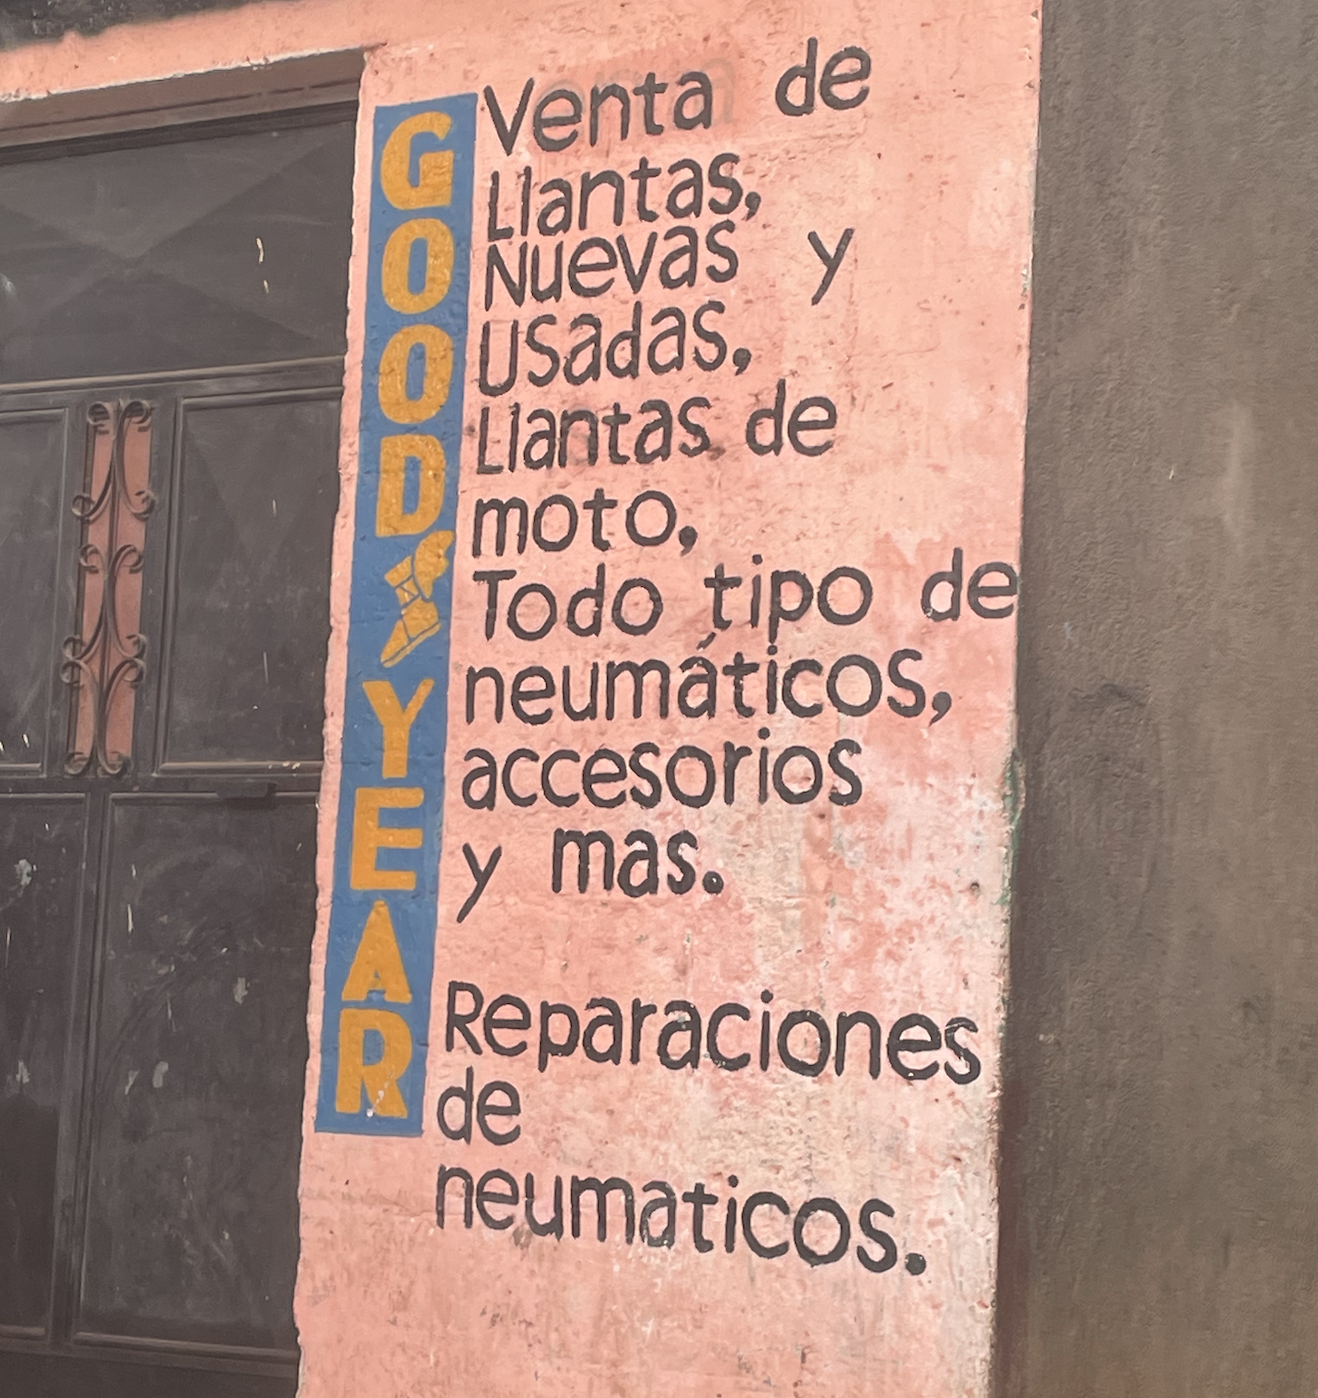 GOODYEAR
Venta de
Llantas,
Nuevas y
Usadas,
Llantas de
moto,
Todo tipo de
neumáticos,
accesorios
y mas.
Reparaciones
de
neumaticos.